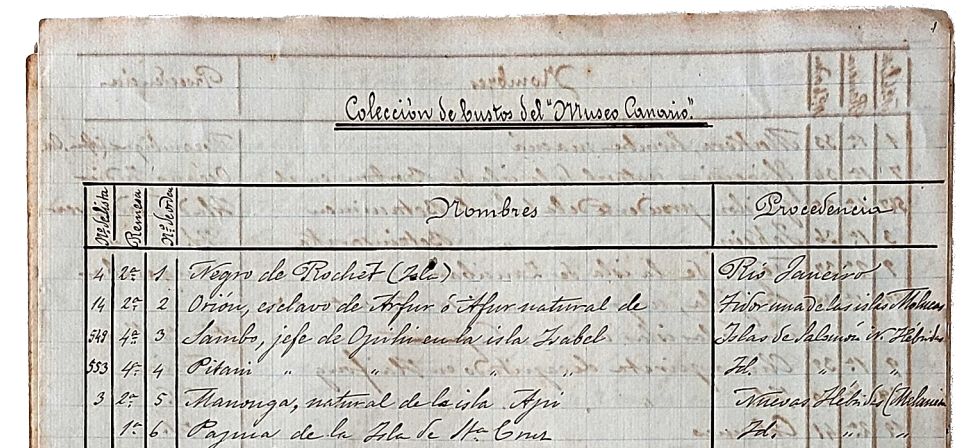 1
Colección de bustos del "Museo Canario."
Nº de lista Remesa Nº de orden Nombres Procedencia
4 2ª 1 Negro de Rochet (Isla) Rio Janeiro
14 2ª 2 Orion, esclavo de Arfur ó Afur natural de Tidor una de las islas Molucas
549 4ª 3 Sambo, jefe de en la isla Isabel Islas de Salomón N. Hébridas
553 4ª 4 Pitani " " " " Id. " "
3 2ª 5. Manonga, natural de la isla Api Nuevas Hébridas (Melanesia
1ª 6 Pagina de la Isla de Sta Cruz Id. " "